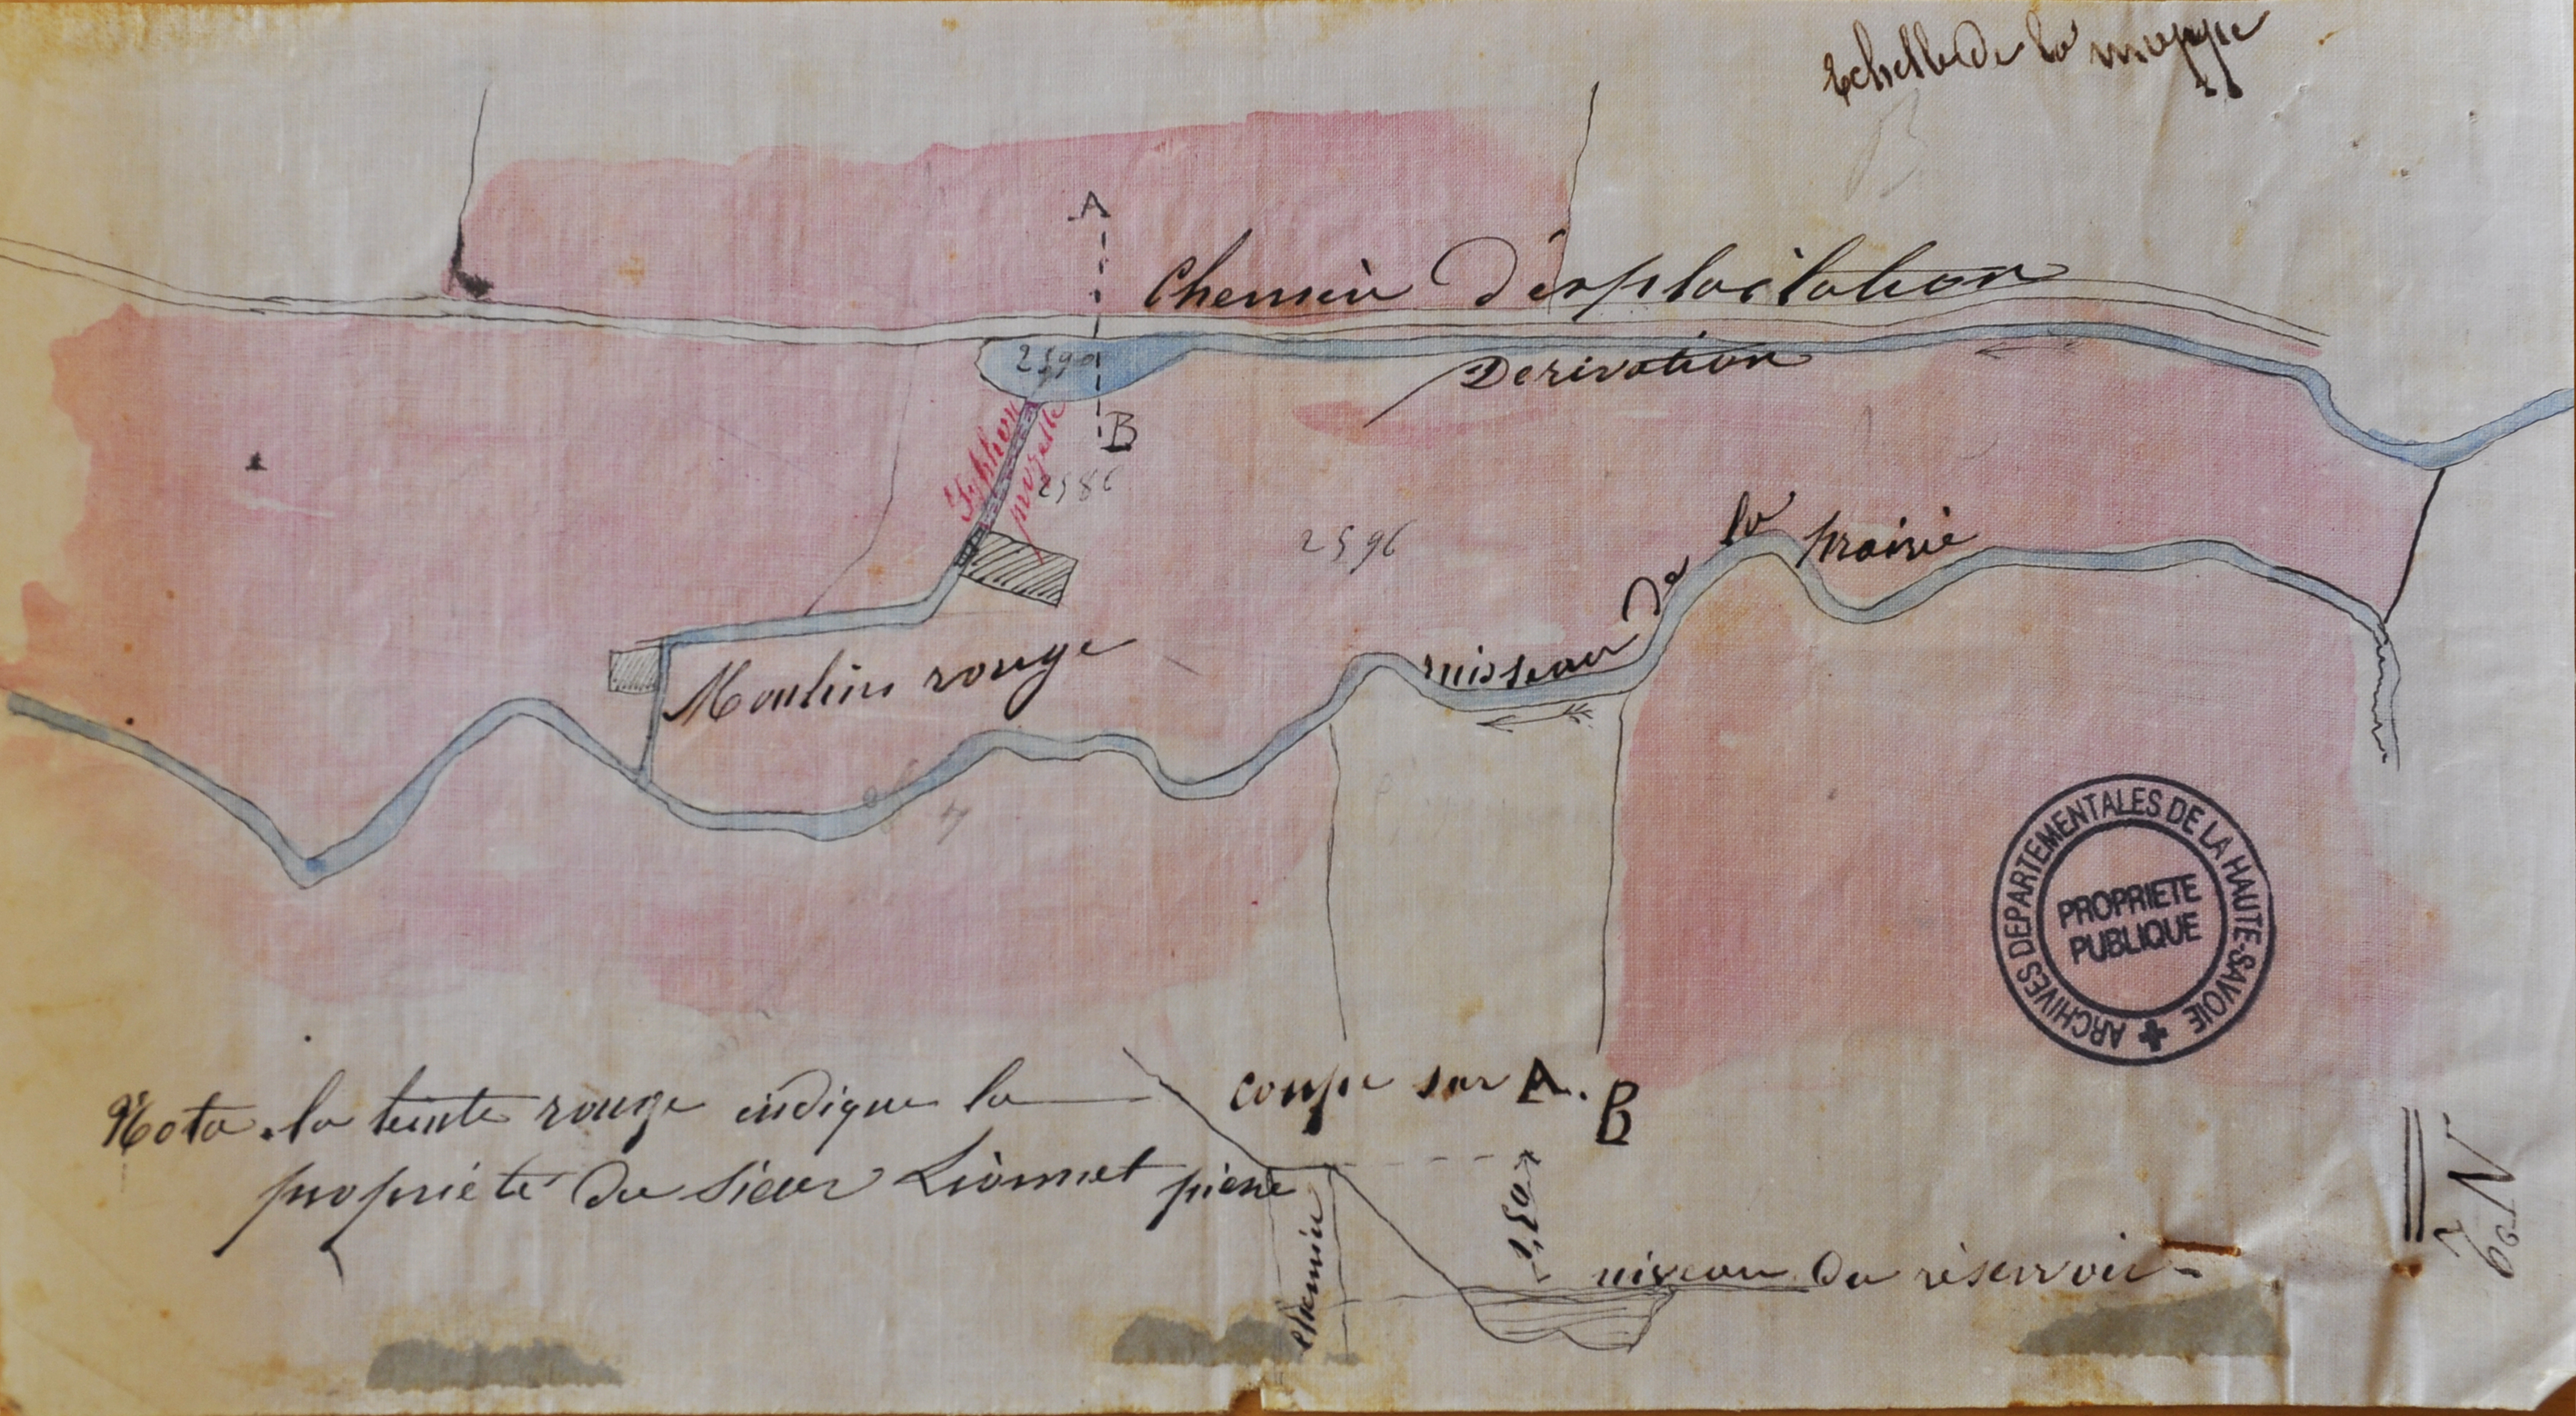 Echelle de la mappe
A
Chemin d'exploitation
2590
Derivation
B
Syphon
projeté
2586
2596
ruisseau de la prairie
Moulin rouge
ARCHIVES DEPARTEMENTALES DE LA HAUTE-SAVOIE
PROPRIETE
PUBLIQUE
coupe sur A. B
Nota. la teinte rouge indique la
propriété du sieur Lionnet pierre
chemin
1,50
niveau du réservoir